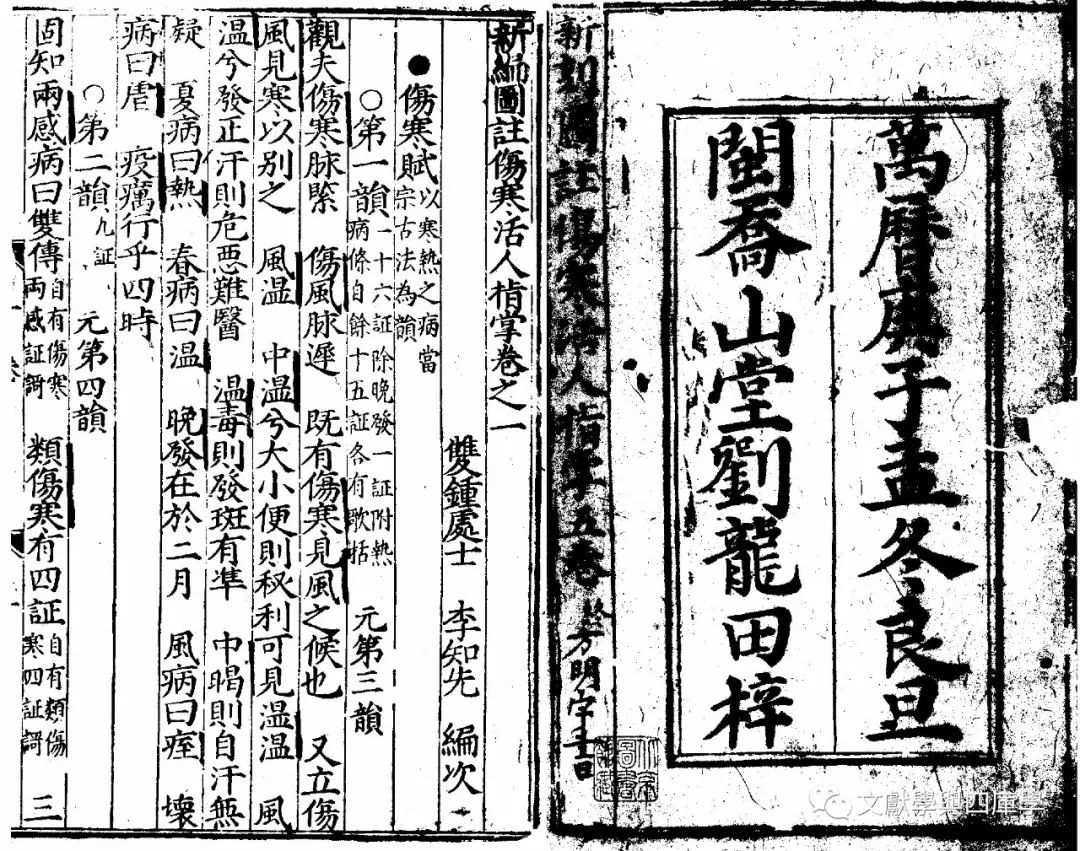 萬曆庚子孟冬良旦
閩喬山堂劉龍田梓
新刻圖註傷寒活人指掌五卷
新編圖註傷寒活人指掌卷之一
雙鍾處士 李知先 編次
●傷寒賦 以寒熱之病當宗古法為韻
○第一韻 一十六証除晚發一証附熱病條自餘十五証各有歌括 元第三韻
觀夫傷寒脉緊 傷風脉遲 既有傷寒見風之候也 又立傷
風見寒以別之 風温 中温兮大小便則秘利可見温温 風
温兮發正汗則危惡難醫 温毒則發斑有準 中暍則自汗無
疑 夏病曰熱 春病曰温 晚發在於二月 風病曰痓 壞
病曰瘧 疫癘行乎四時
○第二韻 九証 元第四韻
固知兩感病曰雙傳 自有傷寒両感証謌 類傷寒有四証 自有類傷寒四証謌 三
文獻學與四庫學